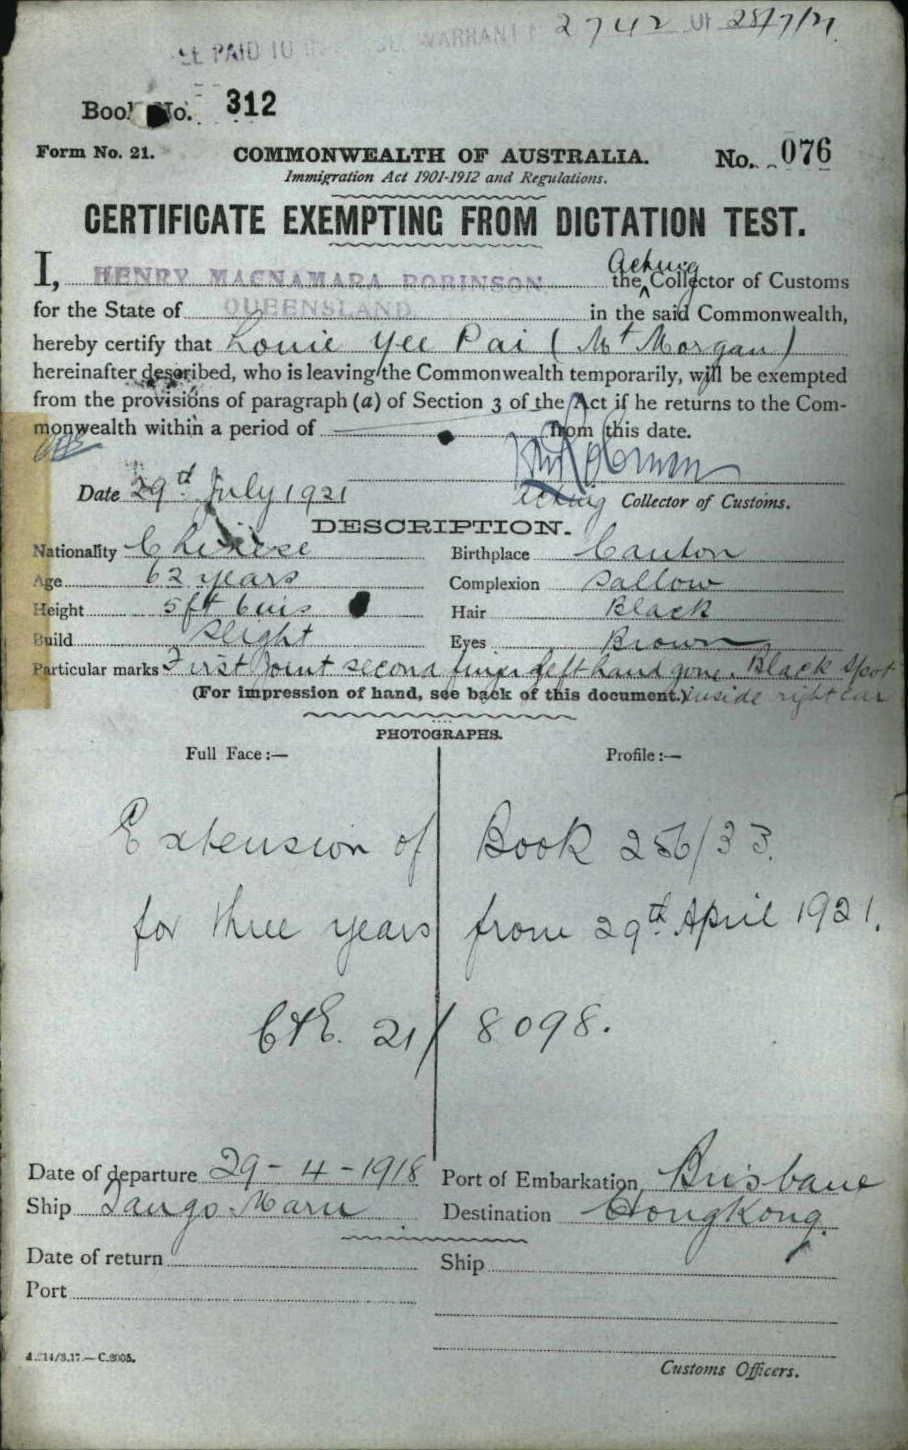 2742 of 28/7/21.
FEE PAID TO WARRANT
Book No. 312
Form No. 21. COMMONWEALTH OF AUSTRALIA. No. 076
Immigration Act 1901-1912 and Regulations.
CERTIFICATE EXEMPTING FROM DICTATION TEST.
I, HENRY MACNAMARA ROBINSON the Acting Collector of Customs
for the State of QUEENSLAND in the said Commonwealth,
hereby certify that Louie Yee Pai (Mt Morgan)
hereinafter described, who is leaving the Commonwealth temporarily, will be exempted
from the provisions of paragraph (a) of Section 3 of the Act if he returns to the Com-
monwealth within a period of from this date.
Date 29th July 1921 Acting Collector of Customs.
DESCRIPTION.
Nationality Chinese Birthplace Canton
Age 62 years Complexion Sallow
Height 5 ft 6 ins Hair Black
Build Slight Eyes Brown
Particular marks First joint second finger left hand gone. Black spot
(For impression of hand, see back of this document.) inside right ear
PHOTOGRAPHS.
Full Face:— Profile:—
Extension of Book 256/33.
for three years from 29th April 1921.
C&E. 21/8098.
Date of departure 29-4-1918 Port of Embarkation Brisbane
Ship Tango Maru Destination Hongkong.
Date of return Ship
Port
14/3.17.—C.3005.
Customs Officers.